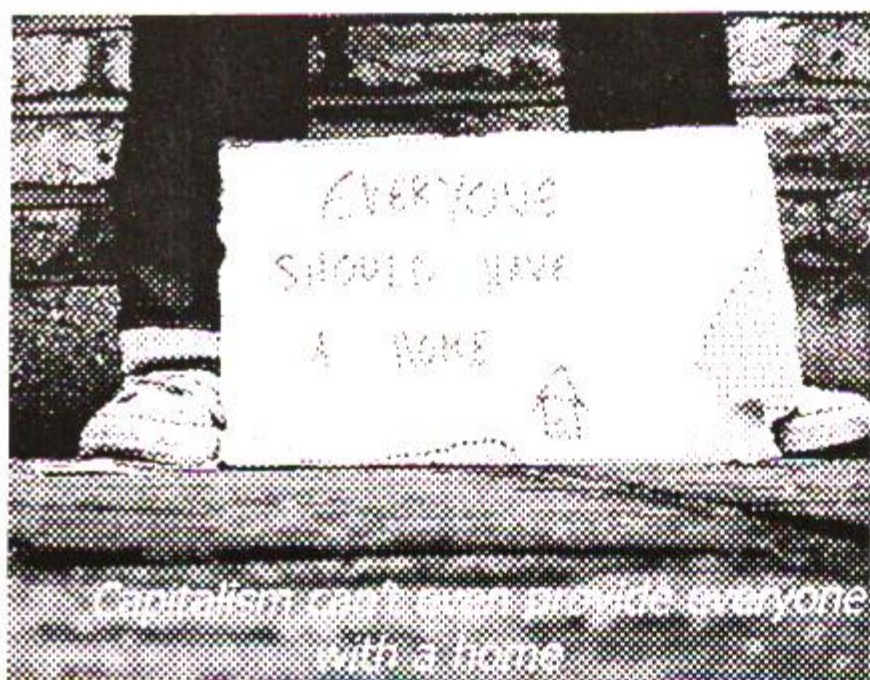 EVERYONE
SHOULD HAVE
A HOME
Capitalism can't even provide everyone
with a home